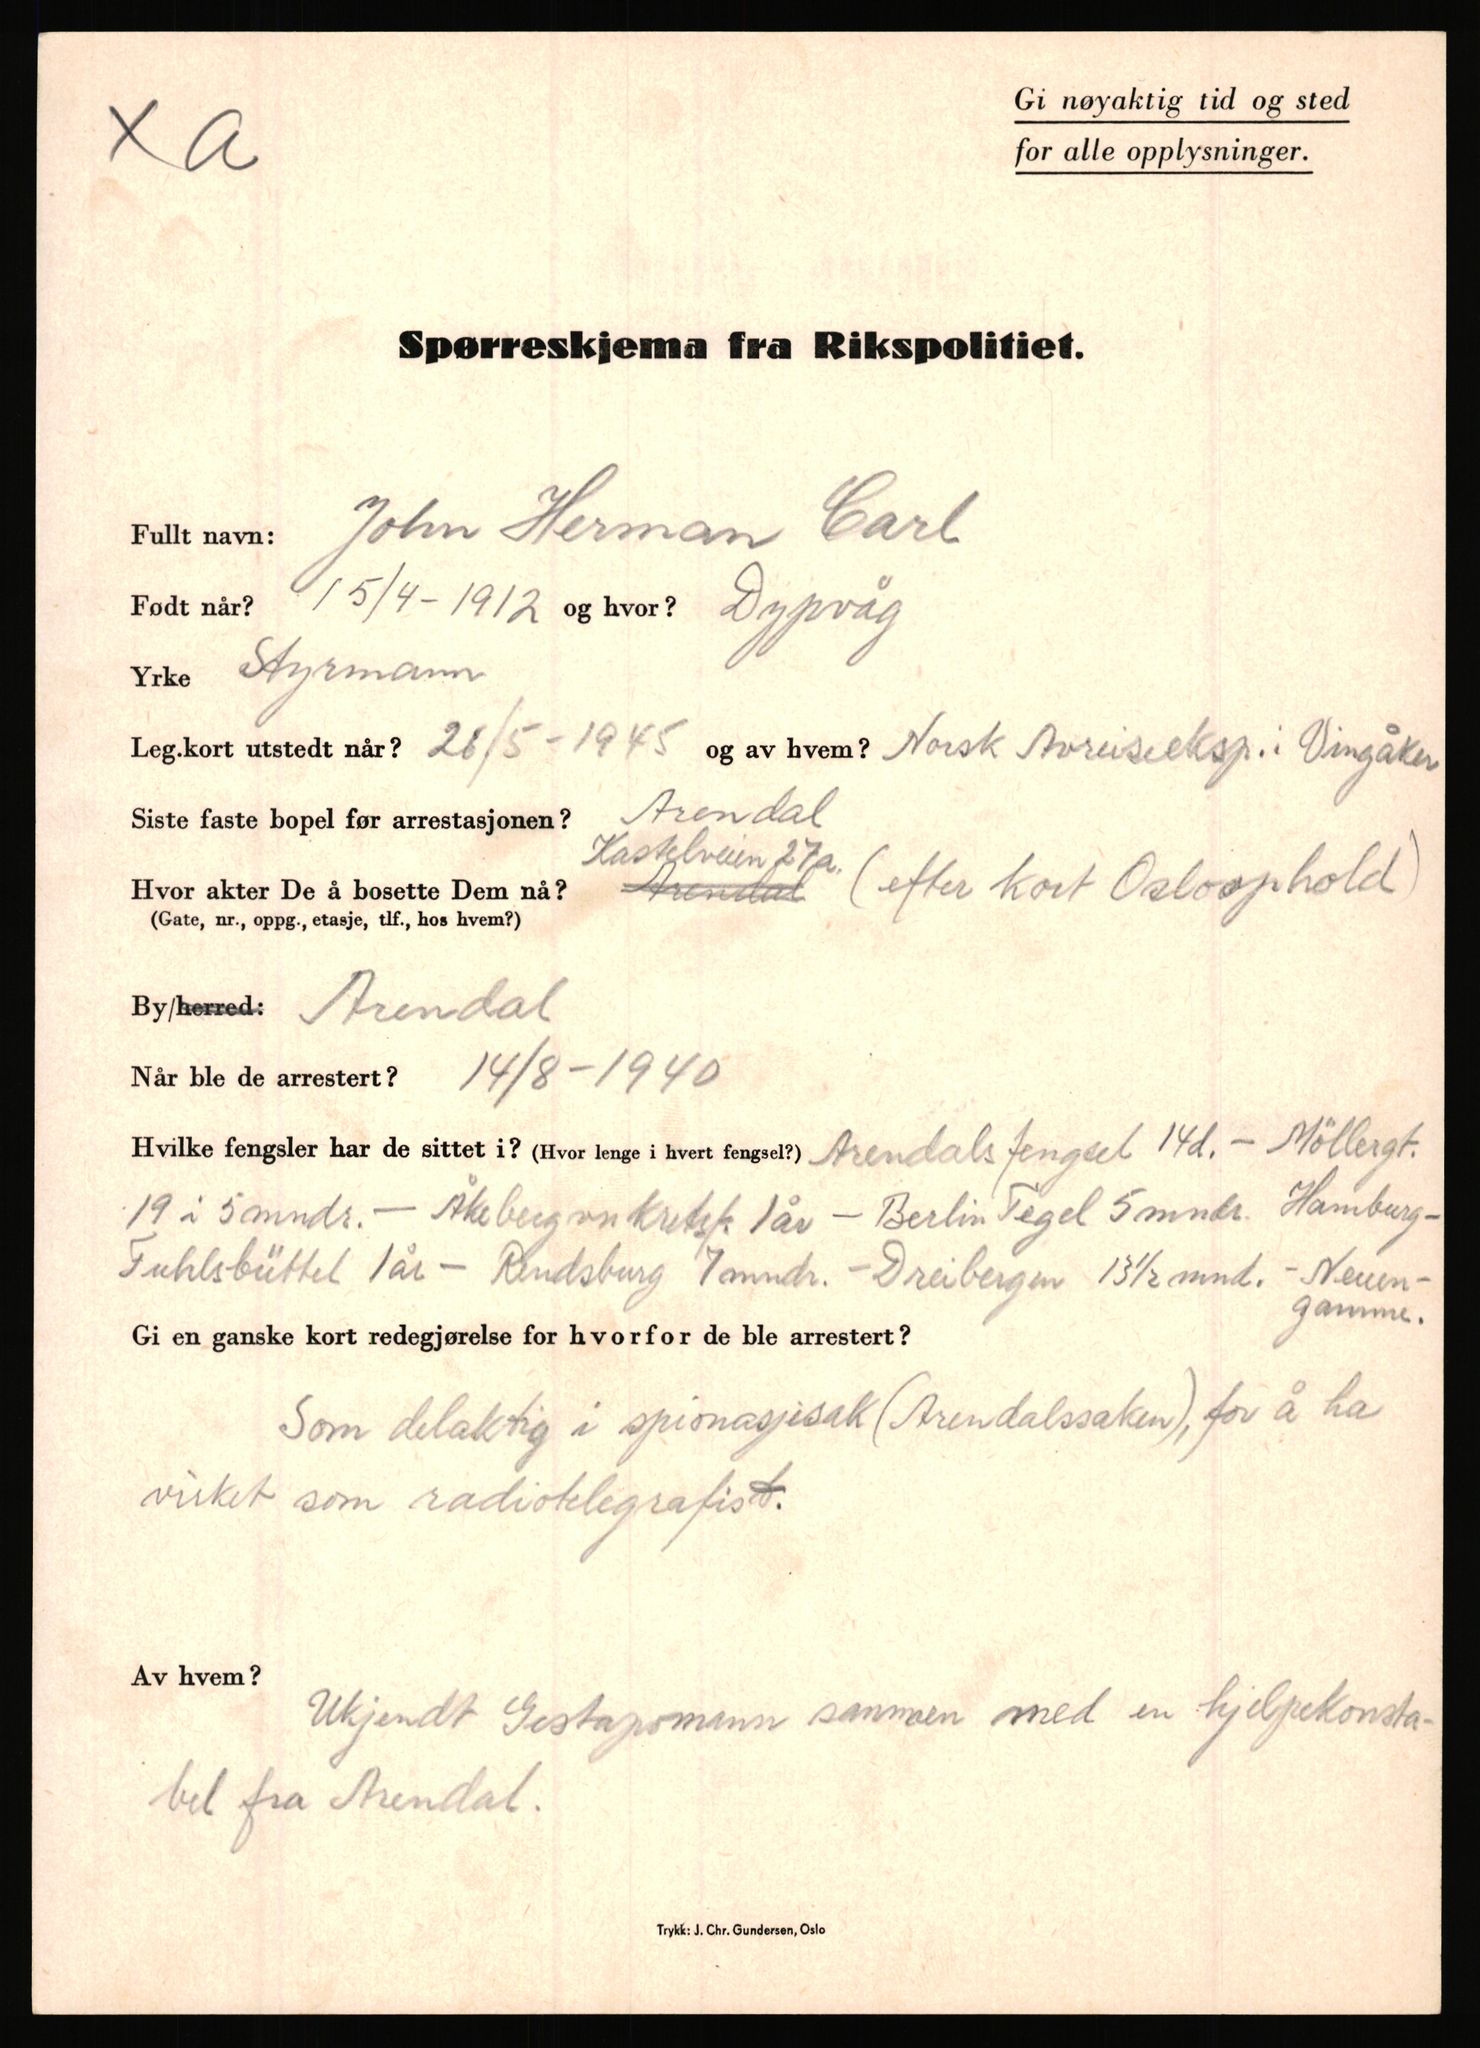 X a
Gi nøyaktig tid og sted
for alle opplysninger.
Spørreskjema fra Rikspolitiet.
Fullt navn: John Herman Carl
Født når? 15/4-1912 og hvor? Dypvåg
Yrke Styrmann
Leg.kort utstedt når? 26/5-1945 og av hvem? Norsk Avreiseeksp. i Vingåker
Siste faste bopel før arrestasjonen? Arendal
Kastelveien 27a.
Hvor akter De å bosette Dem nå? Arendal (efter kort Osloophold)
(Gate, nr., oppg., etasje, tlf., hos hvem?)
By/herred: Arendal
Når ble de arrestert? 14/8-1940
Hvilke fengsler har de sittet i? (Hvor lenge i hvert fengsel?) Arendals fengsel 14d. - Möllergt.
19 i 5 mndr. - Åkebergvn kretsf. 1 år - Berlin Tegel 5 mndr. Hamburg-
Fuhlsbüttel 1 år - Rendsburg 7 mndr. - Dreibergen 13 1/2 mnd. - Neuen-
gamme.
Gi en ganske kort redegjørelse for hvorfor de ble arrestert?
Som delaktig i spionasjesak (Arendalssaken), for å ha
virket som radiotelegrafist.
Av hvem?
Ukjendt Gestapomann sammen med en hjelpekonsta-
bel fra Arendal.
Trykk: J. Chr. Gundersen, Oslo